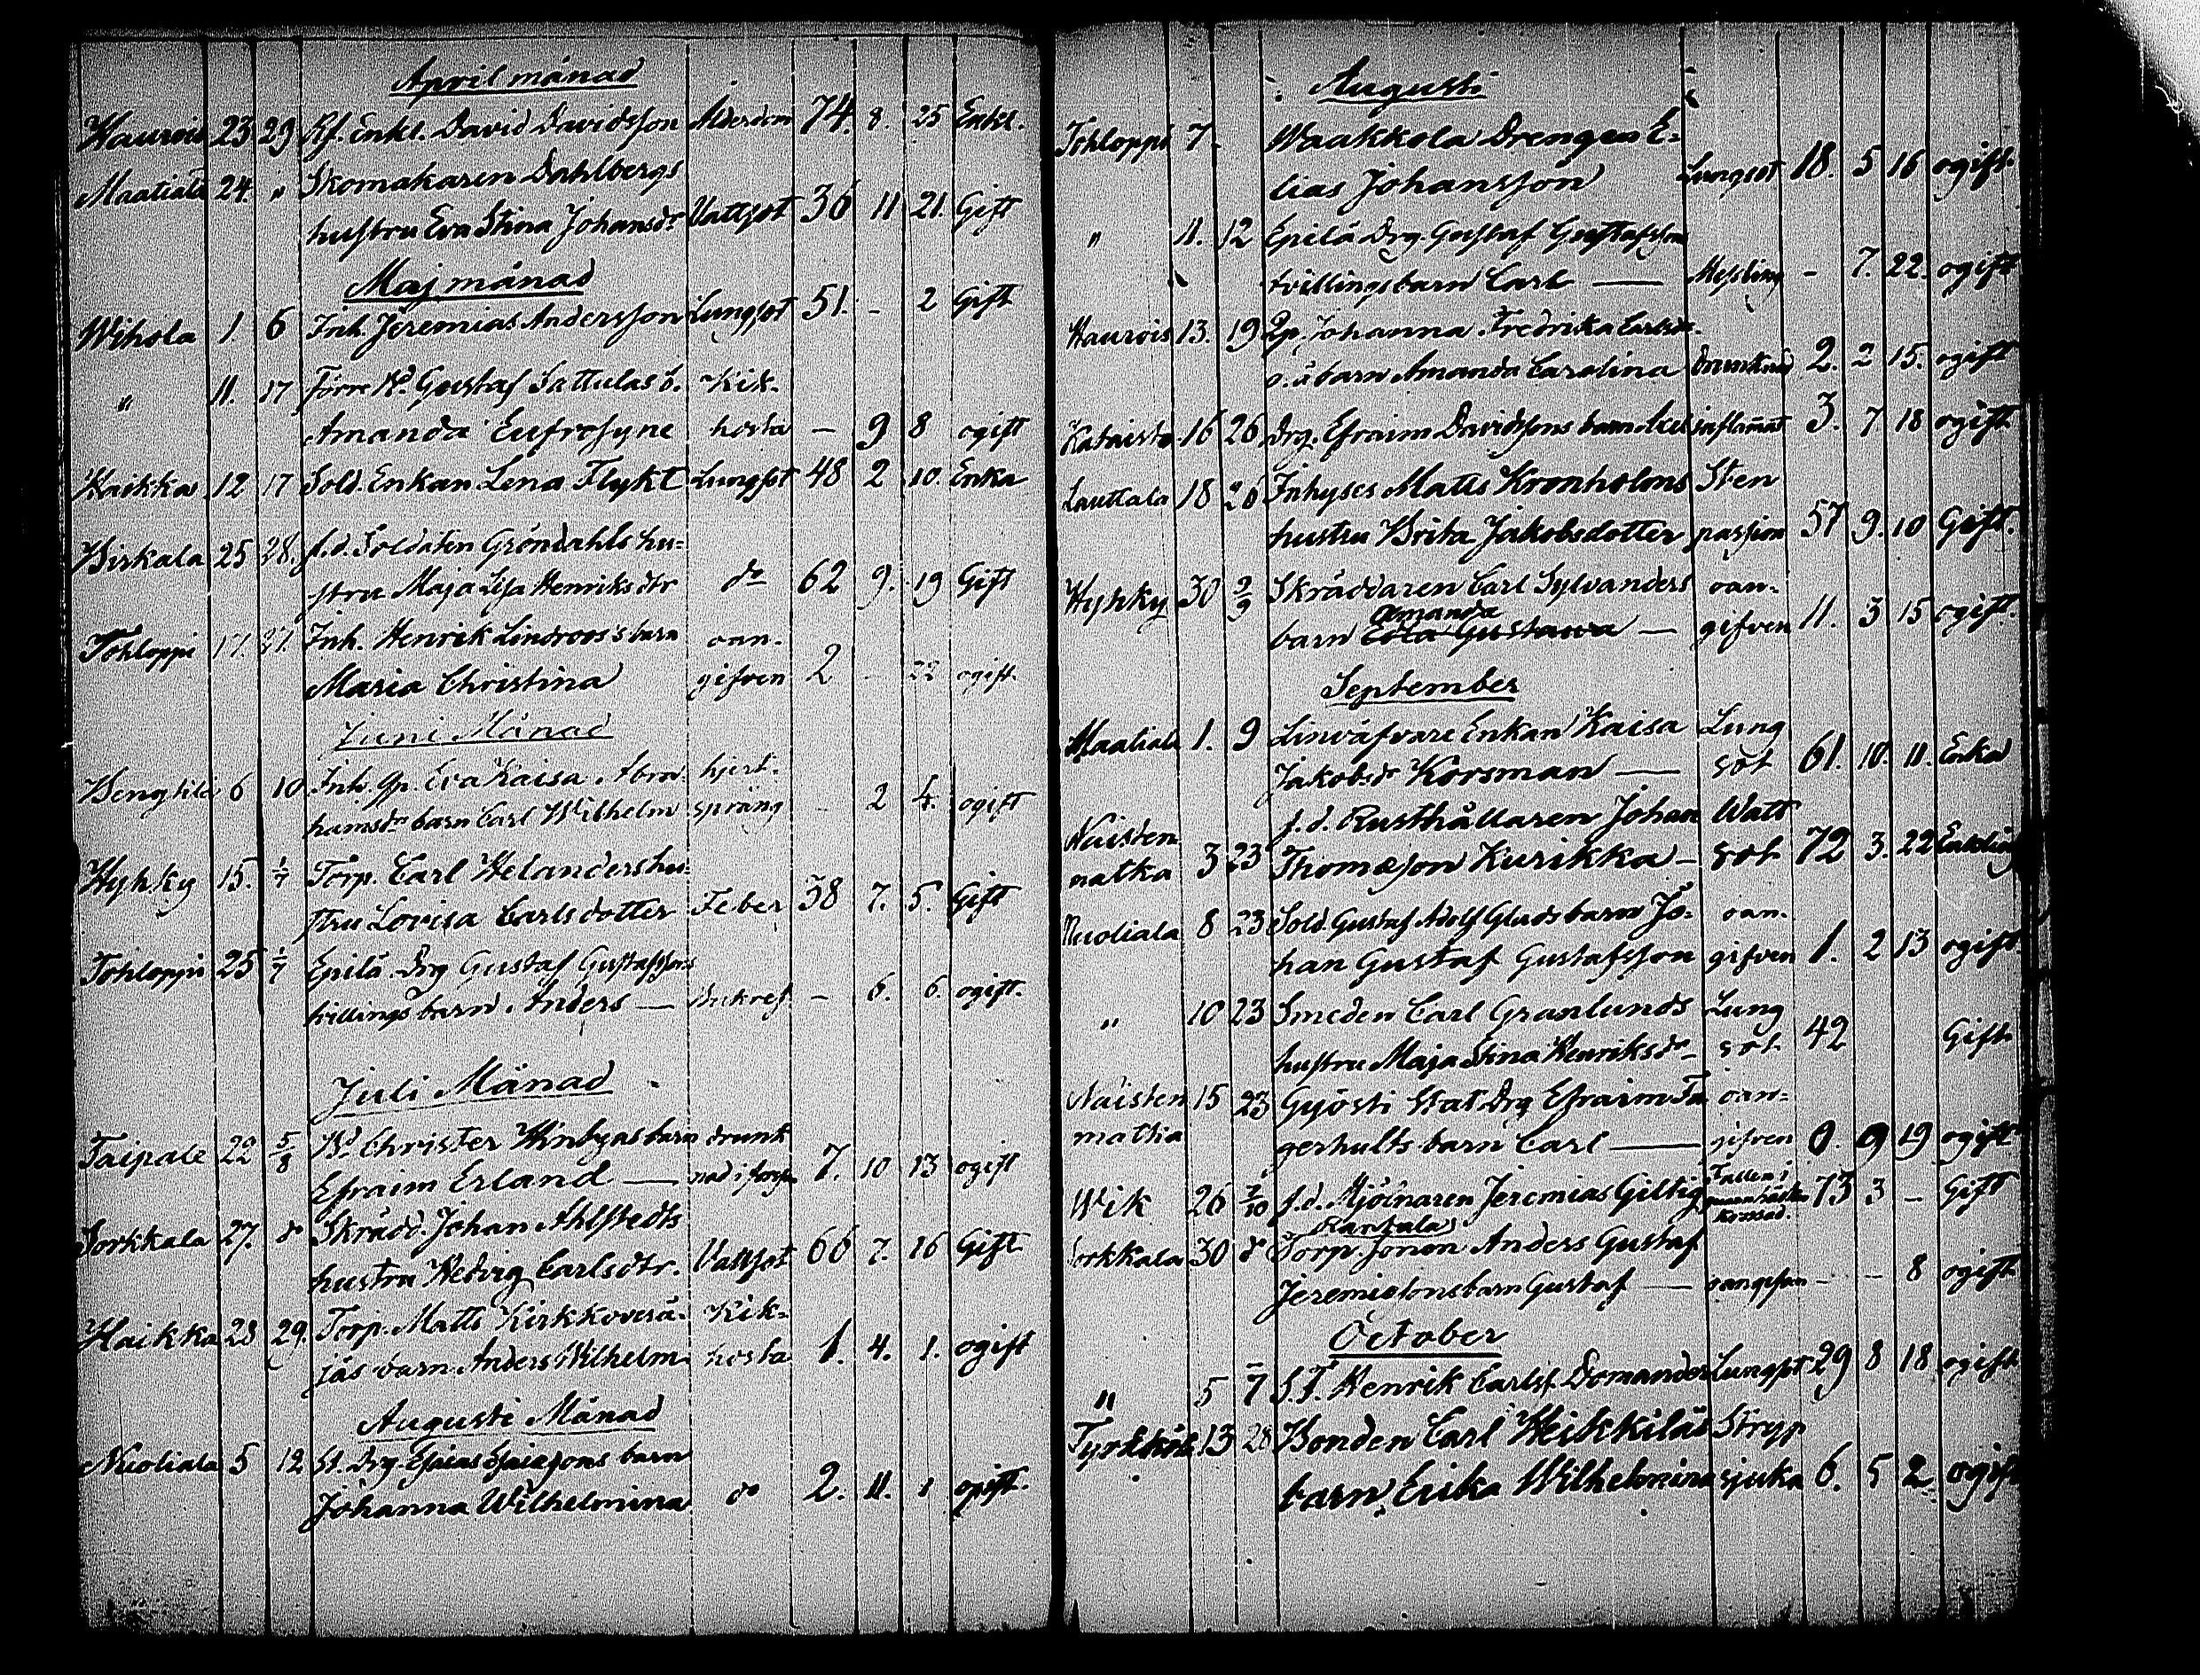 April månad
Haurois 23 29 Rf. Enkl. David Davidsson Ålderdom 74. 8. 25 Enkl.
Maatiala 24. " Skomakaren Dahlbergs
hustru Eva Stina Johansdr Vattsot 36 11 21. Gift
Maj månad
Wihola 1 6 Inh. Jeremias Andersson Lungsot 51. - 2 Gift
" 11. 17 Gustaf Sattulas b. Kik-
Amanda Eufrosyne hosta - 9 8 ogift
Haikka 12 17 Sold. Enkan Lena Flykt Lungsot 48 2 10. Enka
Birkala 25 28. f.d. Soldaten Gröndahls hu-
stru Maja Lisa Henriksdtr do 62 9. 19 Gift
Tohloppi 17. 27. Inh. Henrik Lindroos's barn oan-
Maria Christina gifven 2 - 22 ogift.
Juni Månad
Hengtilä 6 10 Inh. Qp. Eva Kaisa Abra- hjert-
hamsdr barn Carl Wilhelm språng - 2 4. ogift
Hyhky 15. 1/7 Torp. Carl Helanders hu-
stru Lovisa Carlsdotter Feber 38 7. 5. Gift
Tohloppi 25 1/7 Epilä Drg Gustaf Gustafssons
tvillings barn Anders — - 6. 6. ogift.
Juli Månad
Taipale 22 5/8 Bd Christer barn drunk
Efraim Erland — nad i 7. 10 13 ogift
Sorkkala 27. do Skrädd. Johan Ahlstedts
hustru Hedvig Carlsdtr. Vattsot 66 7. 16 Gift
Haikka 28 29. Torp. Matts Kirkkovesä- Kik-
jäs barn Anders Wilhelm hosta 1. 4. 1. ogift
Augusti Månad
Nuoliala 5 12 St. Drg Esaias Esaiasons barn
Johanna Wilhelmina do 2. 11. 1 ogift.
Augusti
Tohloppi 7. Waakkola Drengen E-
lias Johansson Lungsot 18. 5 16 ogift
" 11. 12 Epilä Drg. Gustaf Gustafsson
tvillingsbarn Carl — Messling - 7. 22. ogift
Haurois 13. 19 Qp. Johanna Fredrika Carlsdr.
o.ä barn Amanda Carolina Drunknad 2. 2 15. ogift
Kataisto 16 26 Drg. Efraim Davidssons barn Axel inflamat 3. 7 18 ogift
Lauttala 18 26 Inhyses Matts Kronholms Sten
hustru Brita Jakobsdotter passion 57 9. 10 Gift.
Hyhky 30 2/9 Skräddaren Carl Sylvanders oan-
Amanda
barn Eola Gustava — gifven 11. 3 15 ogift.
September
Maatiala 1. 9 Linväfvare Enkan Kaisa Lung
Jakobsdr Korsman — sot 61. 10. 11. Enka
Naisten f.d. Rusthållaren Johan Watt
matka 3 23 Thomasson Kurikka — sot 72 3. 22 Enkling
Nuoliala 8 23 Sold. Gustaf Adolf Glads barn Jo- oan-
han Gustaf Gustafsson gifven 1. 2 13 ogift
" 10 23 Smeden Carl Granlunds Lung
hustru Maja Stina Henriksdr — sot 42 Gift
Naisten 15 23 Gyösti Stat Drg Efraim Fa oan-
matka gerhults barn Carl — gifven 0. 9 19 ogift
Wik 26 2/10 f.d. Mjölnaren Jeremias Giltig Fallen i 73 3 - Gift
krossad.
Sorkkala 30 do Torp. Sonen Anders Gustaf
Jeremiesons barn Gustaf — oangifven - - 8 ogift
October
" 5 7 S.F. Henrik Carlss. Domander Lungsot 29 8 18 ogift
13 28 Bonden Carl Heikkiläs Stryp
barn Erika Wilhelmina sjuka 6. 5 2 ogift